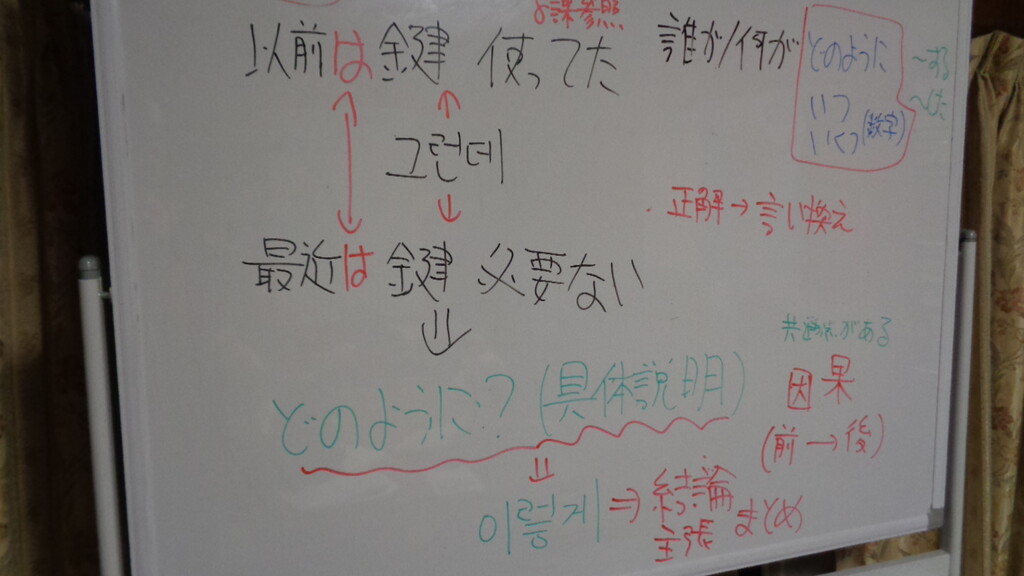 課参照
以前は 鍵 使ってた
誰が/何が
どのように
いつ
いくつ(数字)
〜する
〜した
그런데
・正解→言い換え
最近は 鍵 必要ない
どのように?(具体説明)
共通点がある
因果
(前→後)
이렇게⇒結論
主張
まとめ